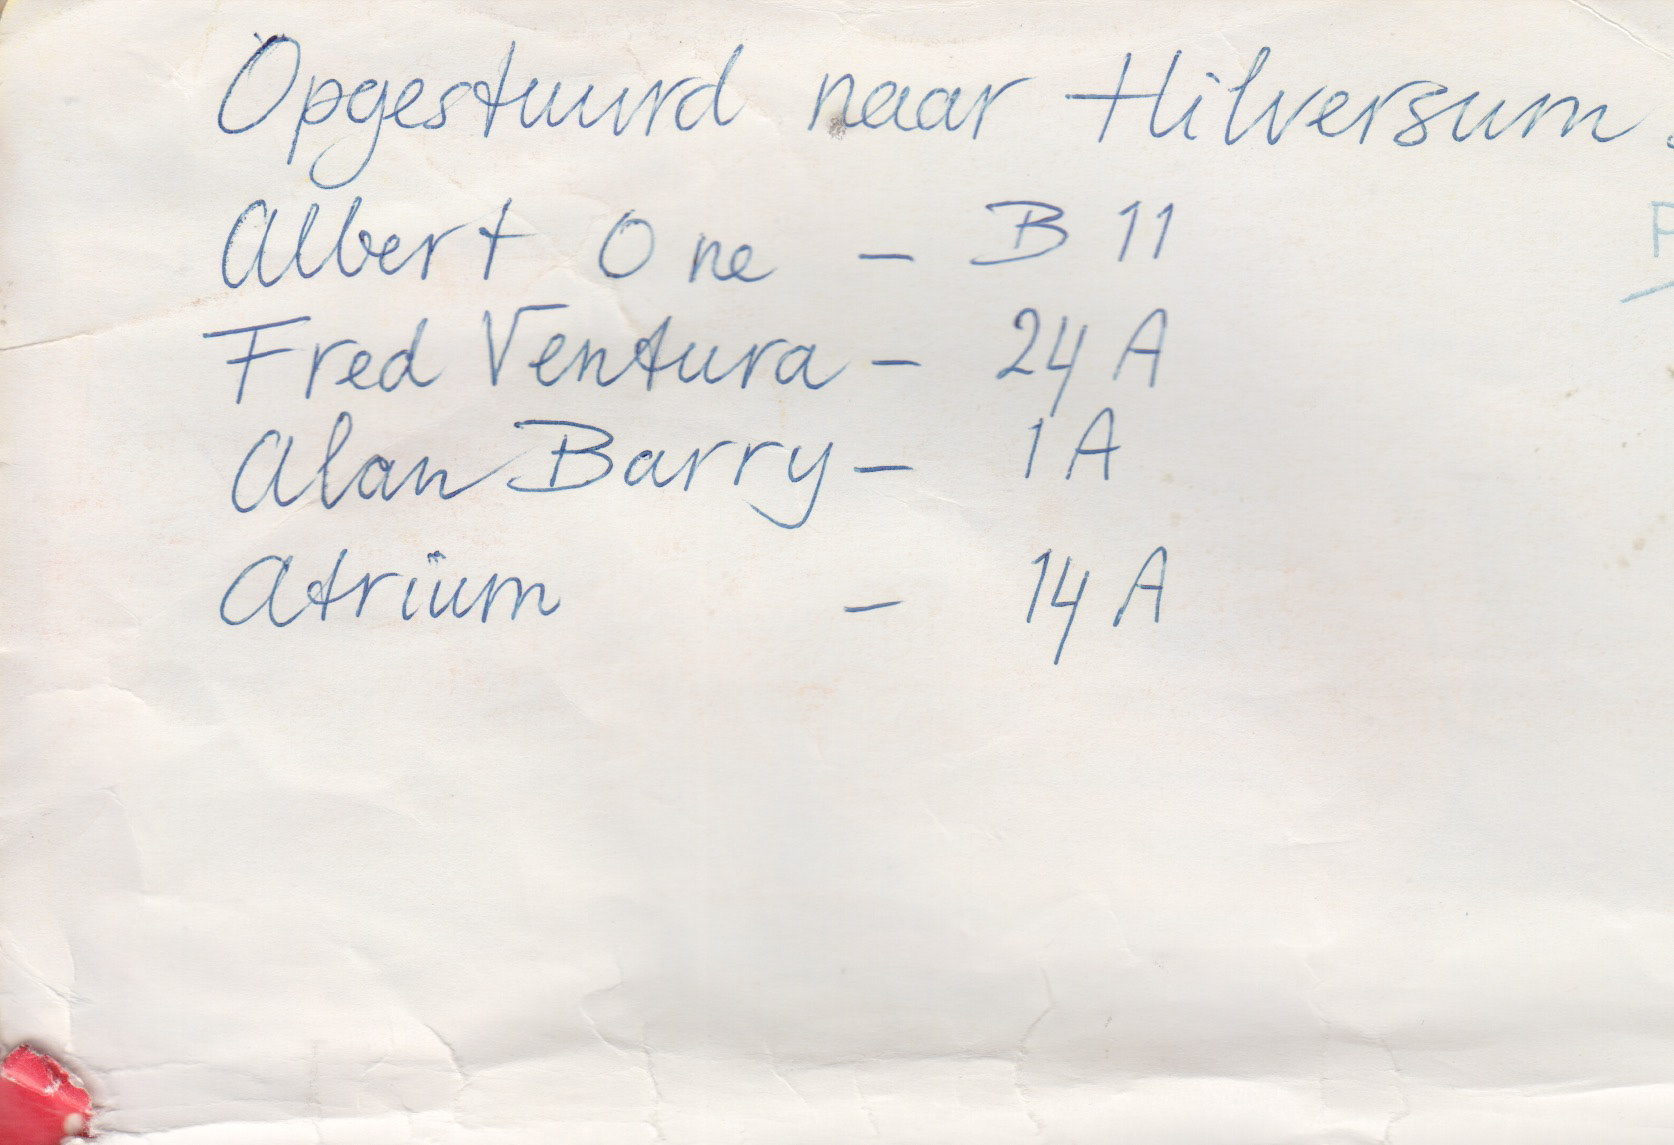 Opgestuurd naar Hilversum
Albert One - B 11
Fred Ventura - 24 A
Alan Barry - 1 A
Atrium - 14 A